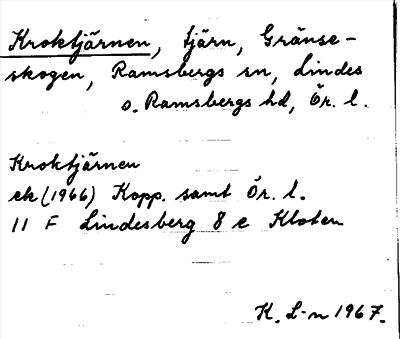 Kroktjärnen, tjärn, Gränse-
skogen, Ramsbergs sn, Lindes
o. Ramsbergs hd, Ör. l.
Kroktjärnen
ek (1966) Kopp. samt Ör. l.
11 F Lindesberg 8 e Kloten
K. L-n 1967.